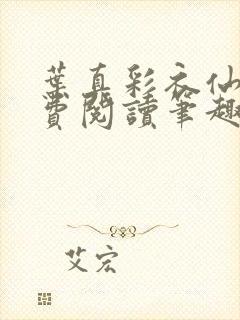 葉真彩衣仙
費閱讀筆趣
艾宏